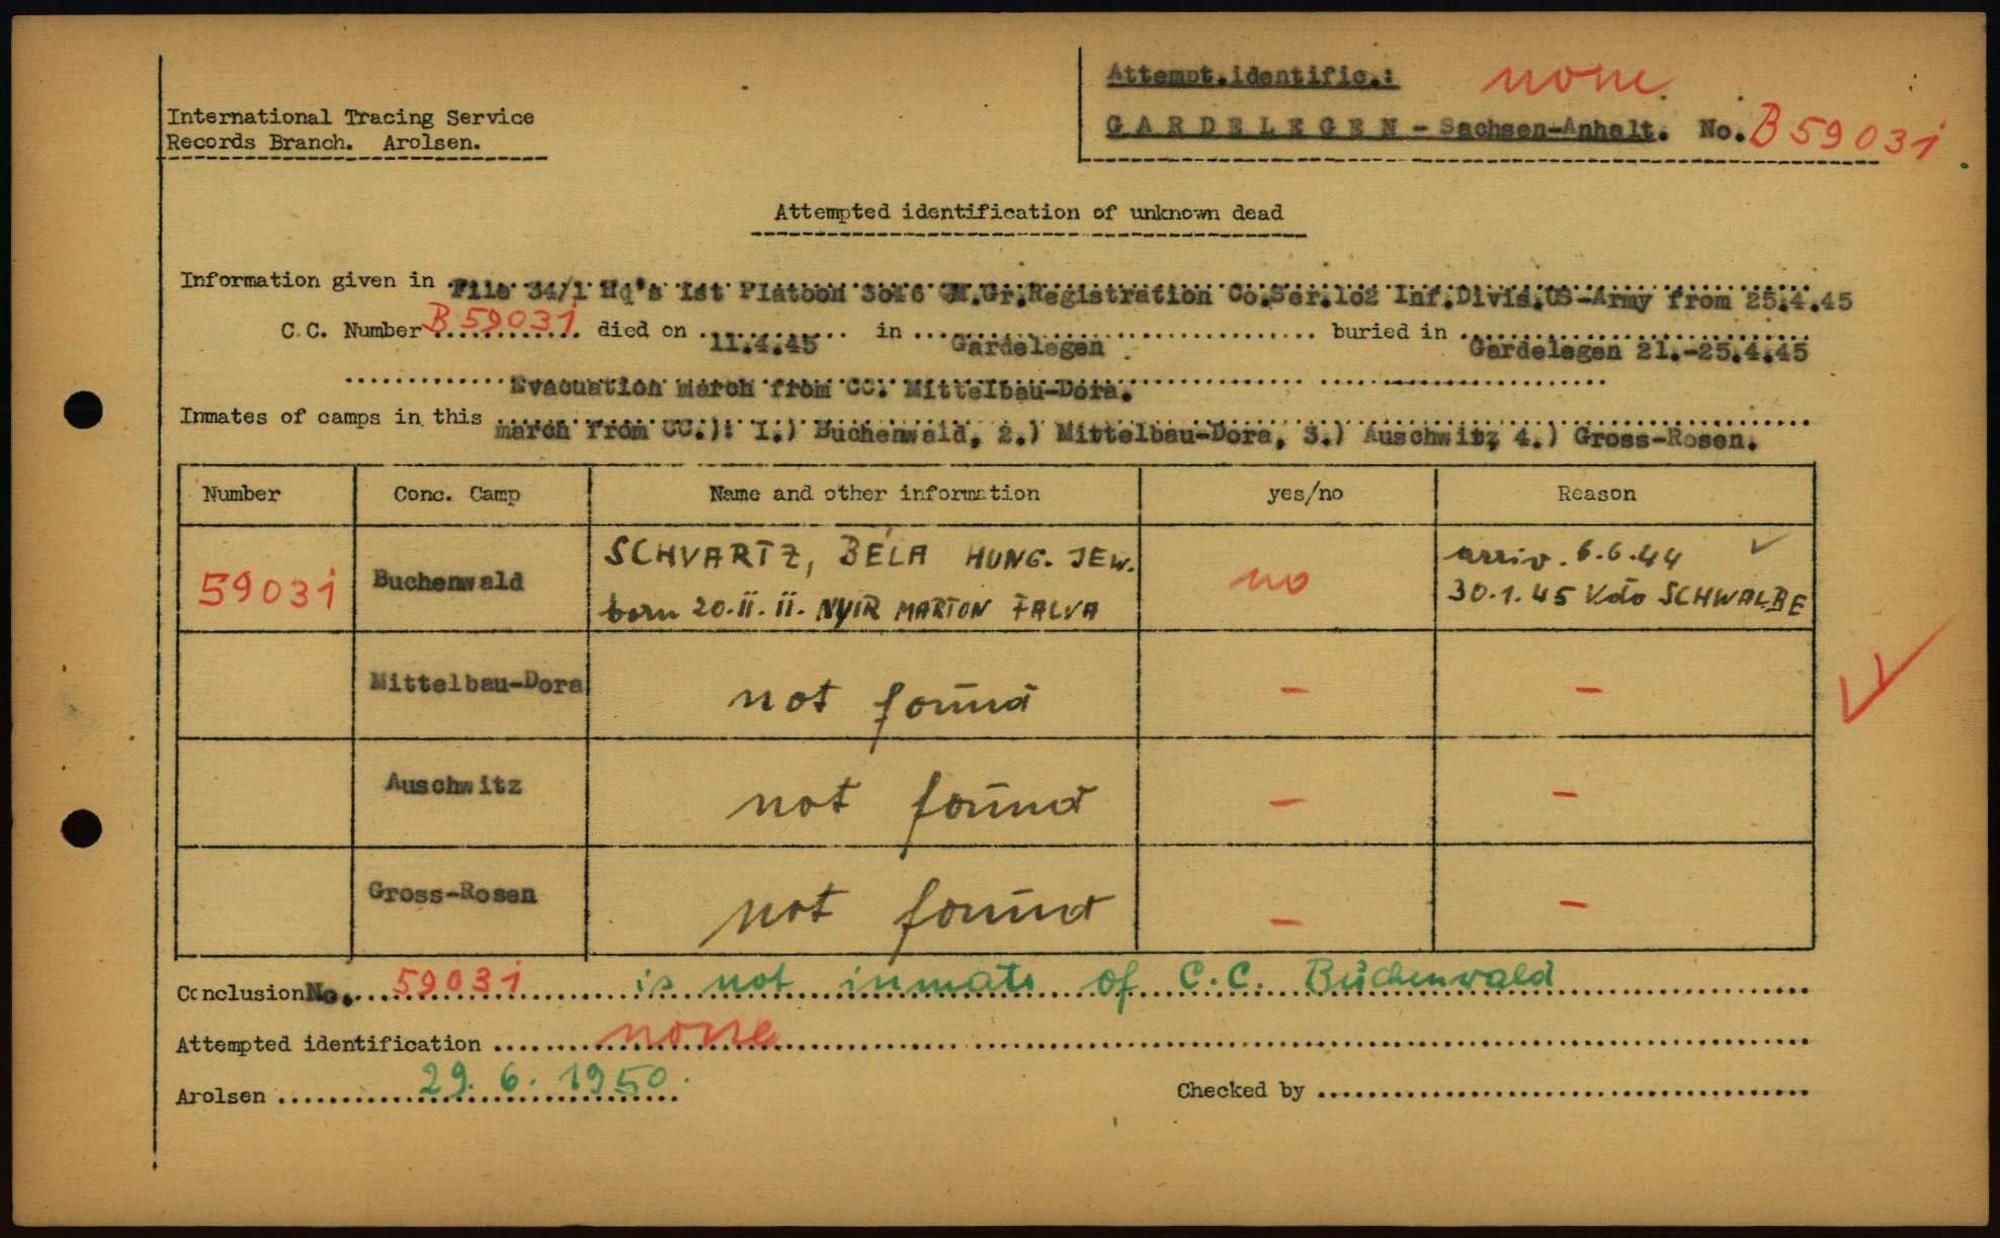 Attempt.identific.: none
International Tracing Service
Records Branch. Arolsen.
GARDELEGEN - Sachsen-Anhalt. No. B 59031
Attempted identification of unknown dead
Information given in File 34/1 Hq's 1st Platoon 3046 QM.Gr.Registration Co.Ser.102 Inf.Divis.US-Army from 25.4.45
C.C. Number B 59031 died on 11.4.45 in Gardelegen buried in Gardelegen 21.-25.4.45
Evacuation march from CC. Mittelbau-Dora.
Inmates of camps in this march from CC.): 1.) Buchenwald, 2.) Mittelbau-Dora, 3.) Auschwitz 4.) Gross-Rosen.
Number Conc. Camp Name and other information yes/no Reason
59031 Buchenwald SCHVARTZ, BÉLA HUNG. JEW. no arriv. 6.6.44 ✓
born 20.11.11. NYIR MARTON FALVA 30.1.45 Kdo SCHWALBE
Mittelbau-Dora not found - -
Auschwitz not found - -
Gross-Rosen not found - -
Conclusion No. 59031 is not inmate of C.C. Buchenwald
Attempted identification none
Arolsen 29. 6. 1950. Checked by